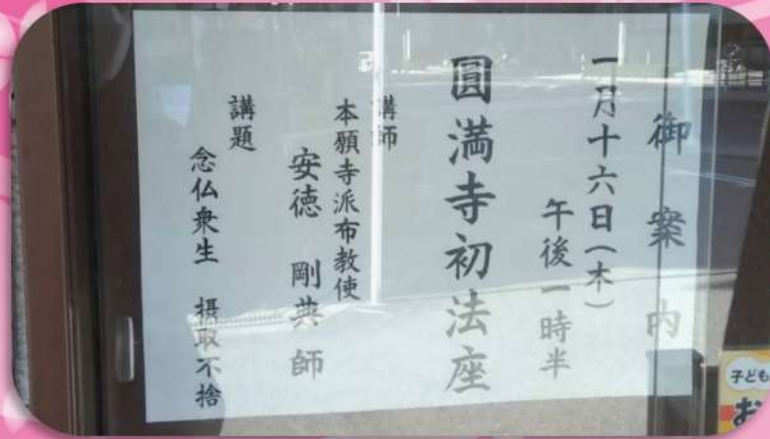 御案内
一月十六日(木)
午後一時半
圓満寺初法座
講師
本願寺派布教使
安徳 剛典 師
講題
念仏衆生 摂取不捨
子ども